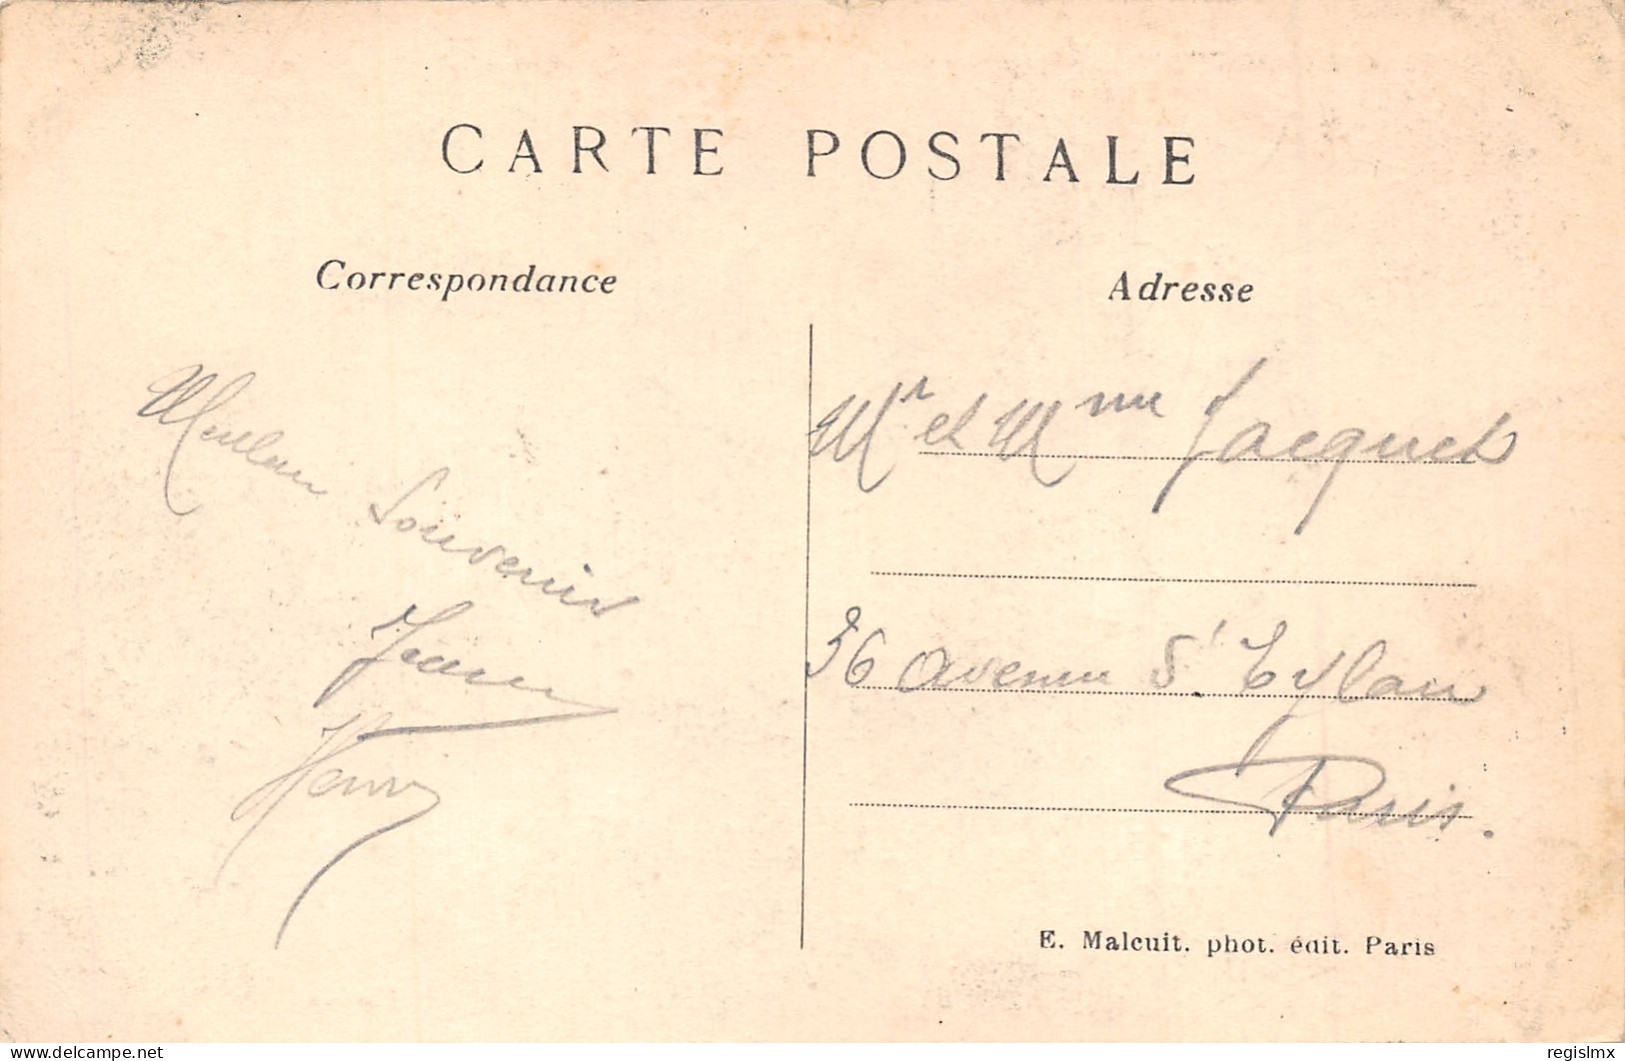 CARTE POSTALE
Correspondance
Adresse
Meilleur
Souvenir
Henri
Mr et Mme Jacquet
36 avenue d'Eylau
Paris.
E. Malcuit. phot. édit. Paris
delcampe.net
regislmx